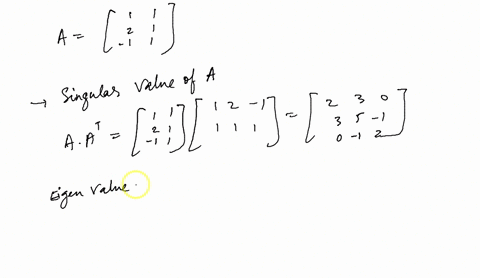 A = [ 1 1
2 1
-1 1 ]
→ Singular value of A
A . Aᵀ = [ 1 1 ] [ 1 2 -1 ] = [ 2 3 0
2 1 1 1 1 3 5 -1
-1 1 0 -1 2 ]
Eigen value